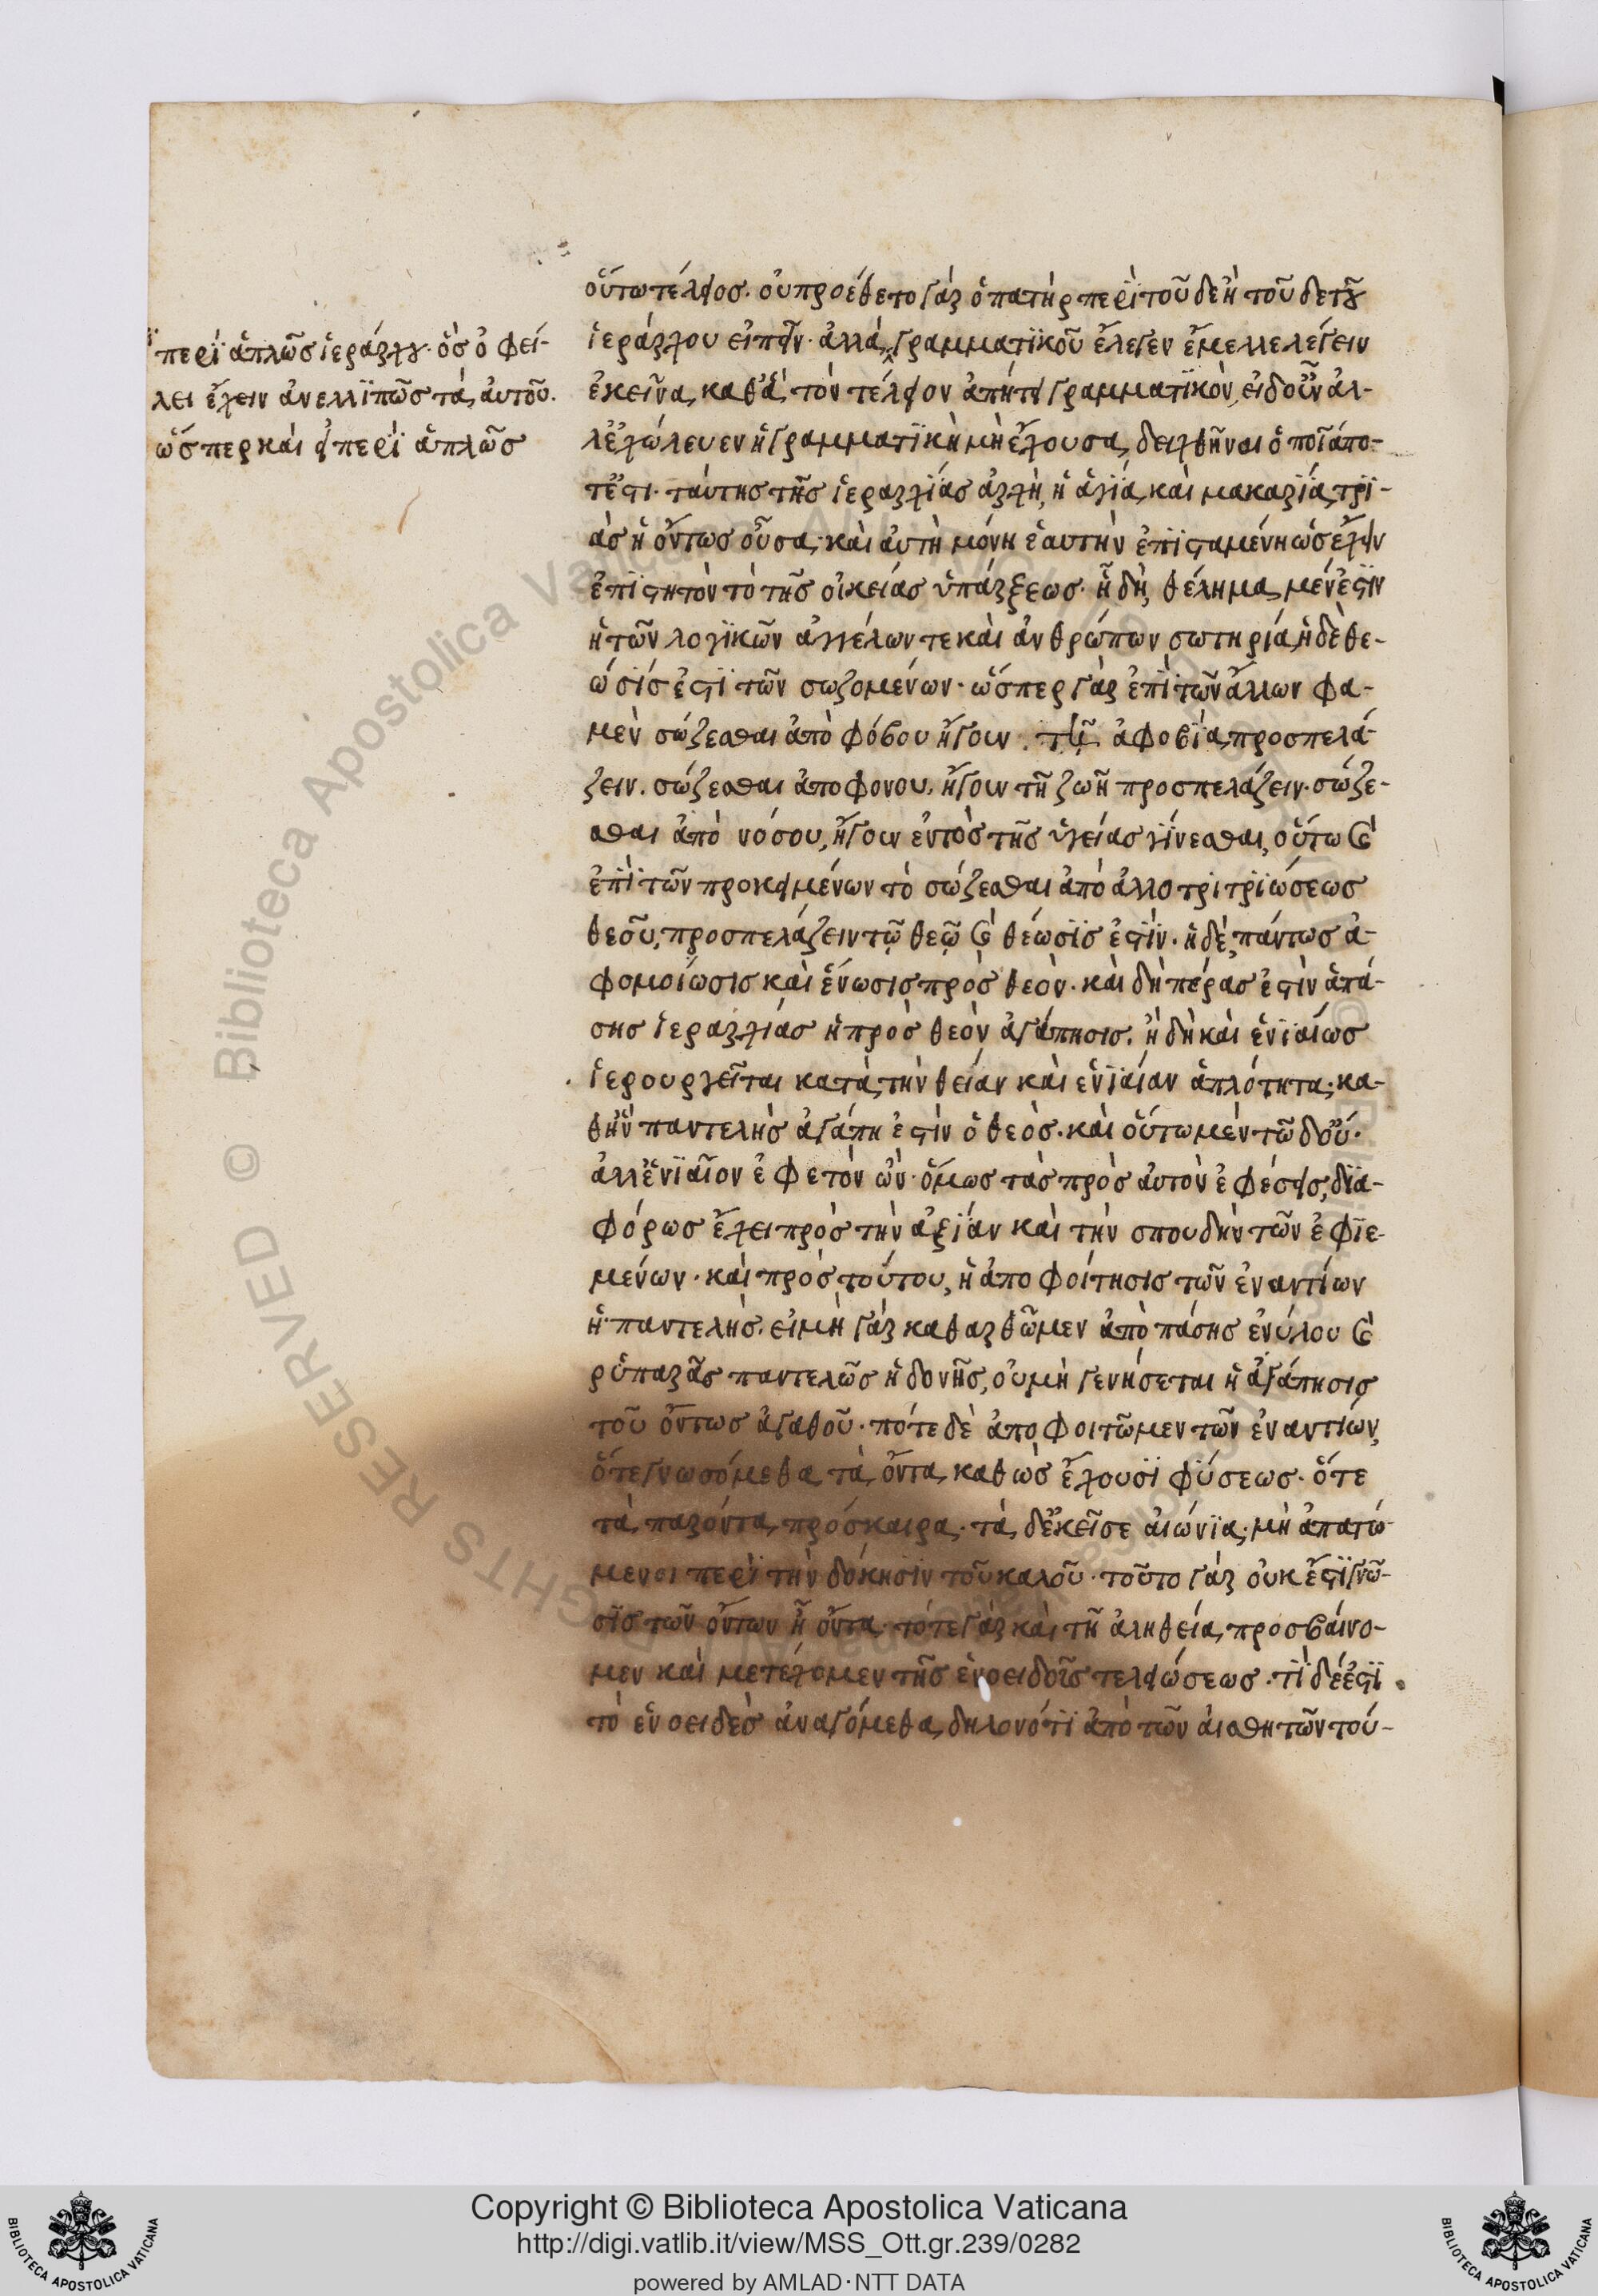 οὕτω τέλειος. οὐ προέθετο γὰρ ὁ πατὴρ περὶ τοῦδε ἢ τοῦδε τοῦ
ἱεράρχου εἰπεῖν· ἀλλὰ γραμματικοῦ ἔλεγεν ἔμελλε λέγειν
ἐκεῖνα, καθὰ τὸν τέλειον ἀπήτει γραμματικὸν, εἰδοῦν ἀλ-
λ' ἐχώλευεν ἡ γραμματικὴ μὴ ἔχουσα, δειχθῆναι ὁποῖά πο-
τ' ἐστι. ταύτης τῆς ἱεραρχίας ἀρχὴ, ἡ ἁγία καὶ μακαρία τρι-
ὰς ἡ ὄντως οὖσα, καὶ αὐτὴ μόνη ἑαυτὴν ἐπισταμένη ὡς ἔχειν
ἐπιστητὸν τὸ τῆς οἰκείας ὑπάρξεως. ἧ δὴ, θέλημα μέν ἐστιν
ἡ τῶν λογικῶν ἀγγέλων τε καὶ ἀνθρώπων σωτηρία, ἡ δὲ θέ-
ωσίς ἐστι τῶν σωζομένων. ὥσπερ γὰρ ἐπὶ τῶν ἄλλων φα-
μὲν σώζεσθαι ἀπὸ φόβου ἤγουν τῇ ἀφοβία προσπελά-
ζειν. σώζεσθαι ἀπο φονου, ἤγουν τῆ ζωῆ προσπελάζειν. σώζε-
σθαι ἀπὸ νόσου, ἤγουν ἐντὸς τῆς ὑγείας γίνεσθαι, οὕτω καὶ
ἐπὶ τῶν προκειμένων τὸ σώζεσθαι ἀπὸ ἀλλοτριτριώσεως
θεοῦ, προσπελάζειν τῷ θεῷ καὶ θέωσίς ἐστιν. ἡ δὲ, πάντως ἀ-
φομοίωσις καὶ ἕνωσις πρὸς θεὸν. καὶ δὴ πέρας ἐστὶν ἁπά-
σης ἱεραρχίας ἡ πρὸς θεὸν ἀγάπησις. ἣ δὴ καὶ ἑνιαίως
ἱερουργεῖται κατὰ τὴν θείαν καὶ ἑνιαίαν ἁπλότητα, κα-
θ' ἣν παντελὴς ἀγάπη ἐστὶν ὁ θεὸς. καὶ οὕτω μὲν τῶ δοῦ.
ἀλλ' ἑνιαῖον ἐφετὸν ὢν· ὅμως τὰς πρὸς αὐτὸν ἐφέσεις, δια-
φόρως ἔχει πρὸς τὴν ἀξίαν καὶ τὴν σπουδὴν τῶν ἐφιε-
μένων. καὶ πρὸς τούτου, ἡ ἀποφοίτησις τῶν ἐναντίων
ἡ παντελὴς. εἰ μὴ γὰρ καθαρθῶμεν ἀπὸ πάσης ἐνύλου καὶ
ῥυπαρᾶς παντελῶς ἡδονῆς, οὐ μὴ γενήσεται ἡ ἀγάπησις
τοῦ ὄντως ἀγαθοῦ. πότε δὲ ἀποφοιτῶμεν τῶν ἐναντίων,
ὅτε γνωσόμεθα τὰ ὄντα, καθὼς ἔχουσι φύσεως. ὅτε
τὰ παρόντα πρόσκαιρα. τὰ δ' ἐκεῖσε αἰώνια, μὴ ἀπατώ-
μενοι περὶ τὴν δόκησιν τοῦ καλοῦ. τοῦτο γὰρ οὐκ ἔστι γνῶ-
σις τῶν ὄντων ἧ ὄντα. τότε γὰρ καὶ τῆ ἀληθεία προσβαίνο-
μεν καὶ μετέχομεν τῆς ἑνοειδοῦς τελειώσεως. τί δέ ἐστι
τὸ ἑνοειδὲς ἀναγόμεθα, δηλονότι ἀπὸ τῶν αἰσθητῶν τού-
περὶ ἁπλῶς ἱεράρχου. ὃς ὀφεί-
λει ἔχειν ἀνελλιπῶς τὰ αὐτοῦ.
ὥσπερ καὶ εἰ περὶ ἁπλῶς
Copyright © Biblioteca Apostolica Vaticana
http://digi.vatlib.it/view/MSS_Ott.gr.239/0282
powered by AMLAD·NTT DATA
BIBLIOTECA APOSTOLICA VATICANA
BIBLIOTECA APOSTOLICA VATICANA